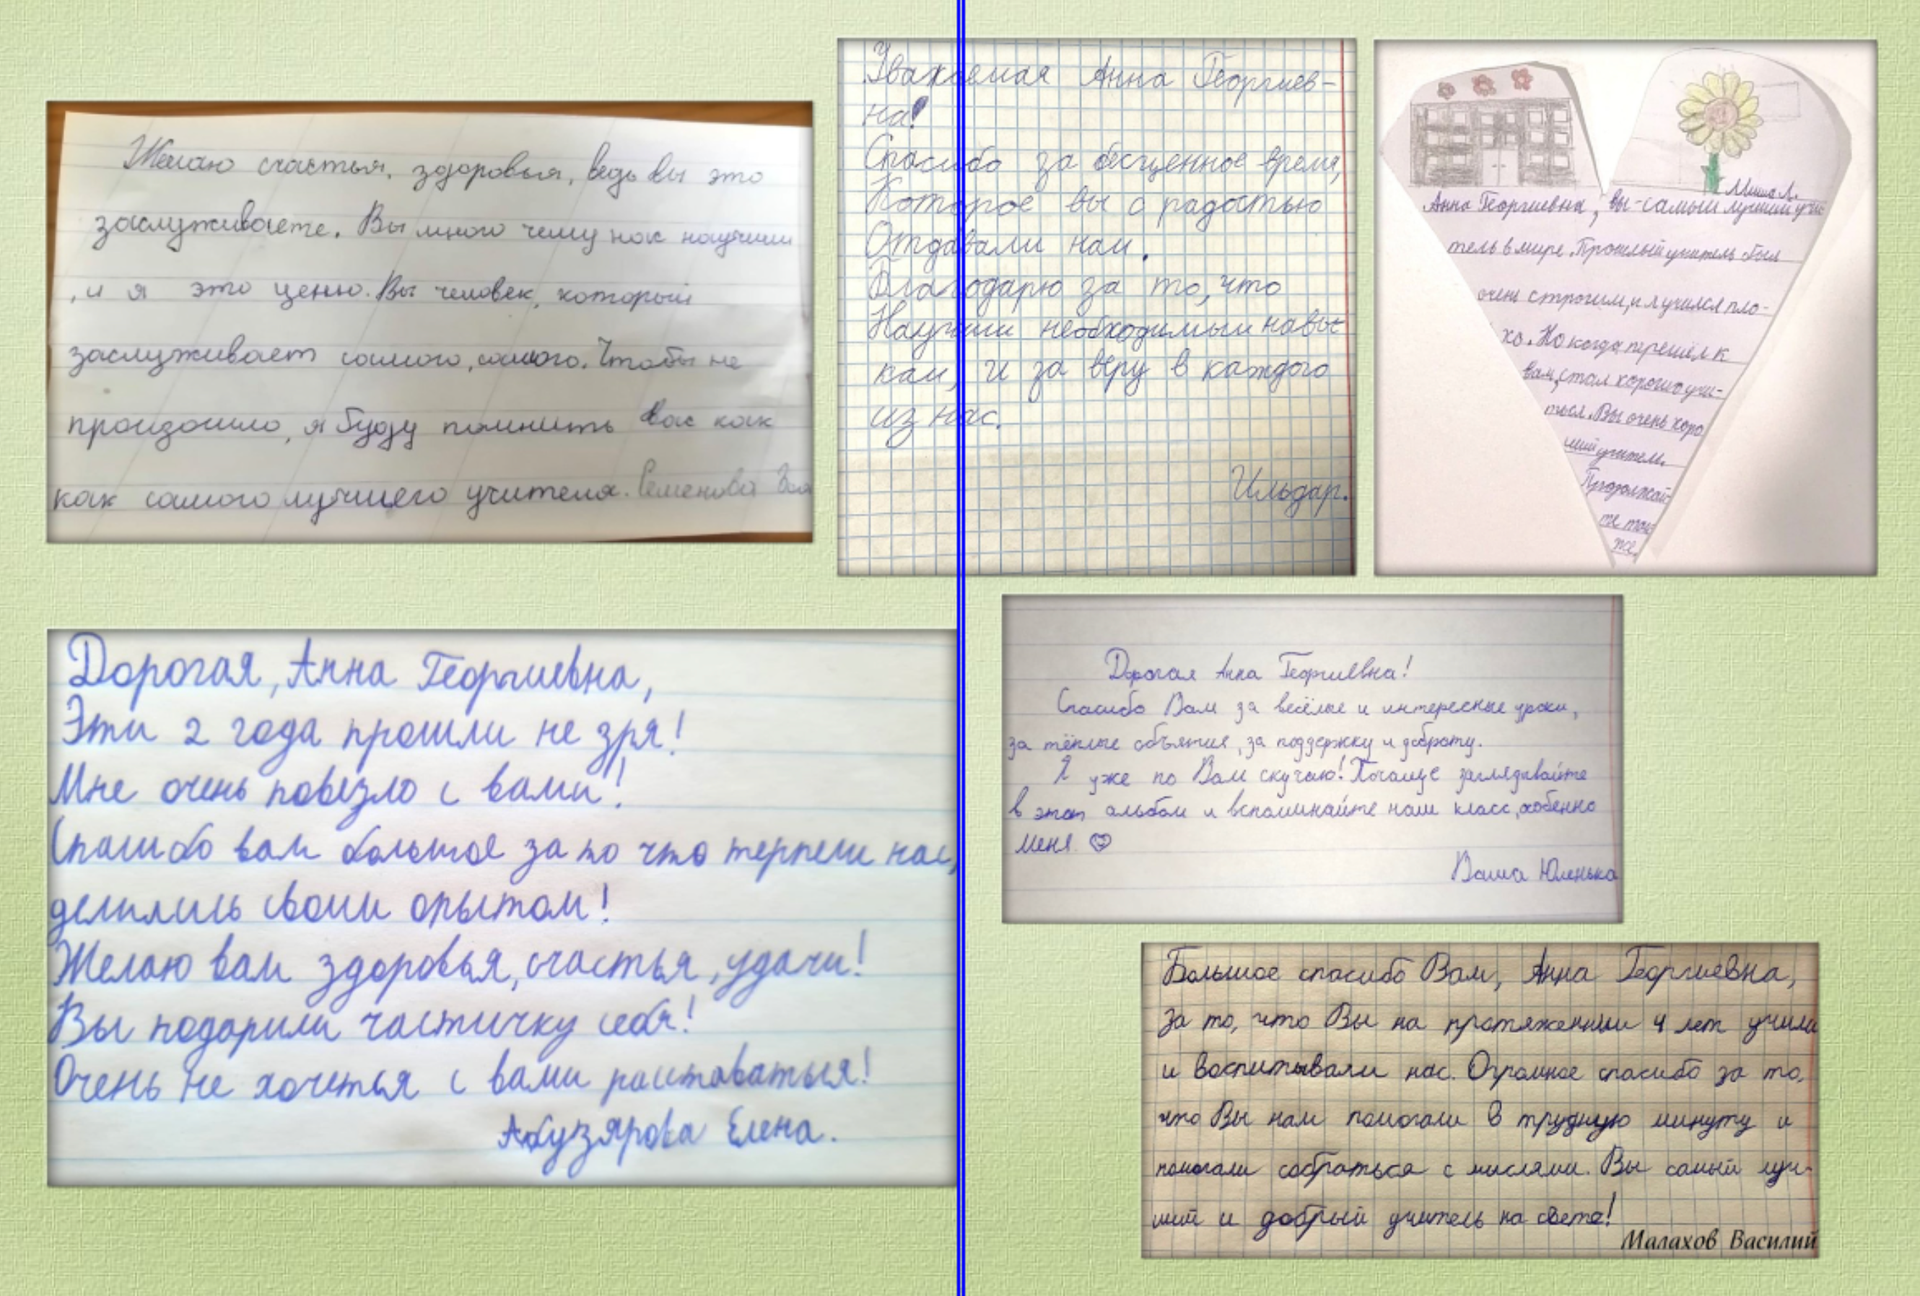 Желаю счастья, здоровья, ведь вы это
заслуживаете. Вы много чему нас научили
, и я это ценю. Вы человек, который
заслуживает самого, самого. Чтобы не
произошло, я буду помнить вас как
как самого лучшего учителя. Семенова
Уважаемая Анна Георгиев-
на!
Спасибо за бесценное время,
Которое вы с радостью
Отдавали нам.
Благодарю за то, что
Научили необходимым навы-
кам, и за веру в каждого
из нас.
Ильдар.
Миша Л.
Анна Георгиевна, вы-самый лучший учи-
тель в мире. Прошлый учитель был
очень строгим, и я учился пло-
хо. Но когда перешёл к
вам, стал хорошо учи-
ться. Вы очень хоро
ший учитель.
Продолжай-
те так
же.
Дорогая, Анна Георгиевна,
Эти 2 года прошли не зря!
Мне очень повезло с вами!
Спасибо вам большое за то что терпели нас,
делились своим опытом!
Желаю вам здоровья, счастья, удачи!
Вы подарили частичку себя!
Очень не хочеться с вами расставаться!
Абузярова Елена.
Дорогая Анна Георгиевна!
Спасибо Вам за весёлые и интересные уроки,
за тёплые объятия, за поддержку и доброту.
Я уже по Вам скучаю! Почаще заглядывайте
в этот альбом и вспоминайте наш класс, особенно
меня
Ваша Юленька
Большое спасибо Вам, Анна Георгиевна,
за то, что Вы на протяжении 4 лет учили
и воспитывали нас. Огромное спасибо за то,
что Вы нам помогали в трудную минуту и
помогали собраться с мыслями. Вы самый луч-
ший и добрый учитель на свете!
Малахов Василий